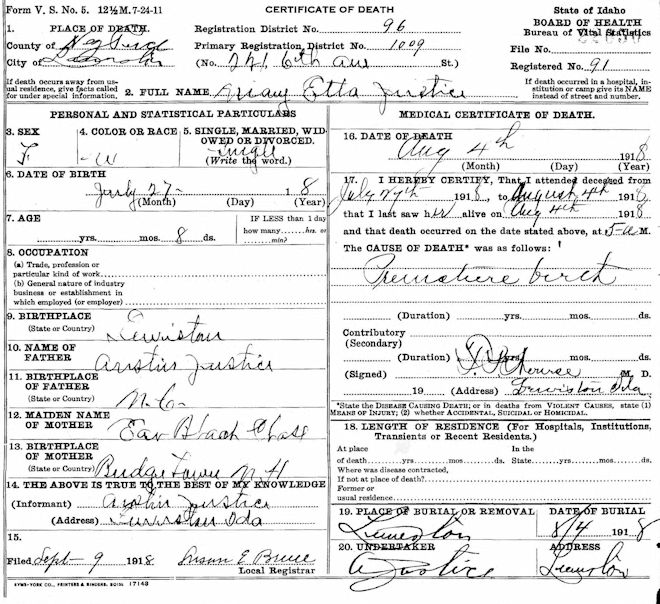 Form V. S. No. 5. 12½M.7-24-11
CERTIFICATE OF DEATH
State of Idaho
BOARD OF HEALTH
Bureau of Vital Statistics
1. PLACE OF DEATH.
Registration District No. 96
File No.
County of Nez Perce
Primary Registration District No. 1009
Registered No. 91
City of Lewiston
(No. 6th ave St.)
If death occurs away from usual residence, give facts called for under special information.
If death occurred in a hospital, institution or camp give its NAME instead of street and number.
2. FULL NAME Mary Etta Justice
PERSONAL AND STATISTICAL PARTICULARS
3. SEX
F
4. COLOR OR RACE
W
5. SINGLE, MARRIED, WIDOWED OR DIVORCED.
Single
(Write the word.)
6. DATE OF BIRTH
July 27- 1 8
(Month) (Day) (Year)
7. AGE
yrs. mos. 8 ds.
IF LESS than 1 day
how many hrs. or
min?
8. OCCUPATION
(a) Trade, profession or
particular kind of work
(b) General nature of industry
business or establishment in
which employed (or employer)
9. BIRTHPLACE
(State or Country)
Lewiston
10. NAME OF FATHER
Austin Justice
11. BIRTHPLACE OF FATHER
(State or Country)
N.C.
12. MAIDEN NAME OF MOTHER
Chase
13. BIRTHPLACE OF MOTHER
(State or Country)
N H
14. THE ABOVE IS TRUE TO THE BEST OF MY KNOWLEDGE
(Informant) Austin Justice
(Address) Lewiston Ida
15.
Filed Sept- 9 1918 Susan E Bruce
Local Registrar
SYMS-YORK CO., PRINTERS & BINDERS, BOISE 17143
MEDICAL CERTIFICATE OF DEATH.
16. DATE OF DEATH
Aug 4th 1918
(Month) (Day) (Year)
17. I HEREBY CERTIFY, That I attended deceased from
July 27th 1918, to August 4th 1918
that I last saw her alive on Aug 4th 1918
and that death occurred on the date stated above, at 5-a M.
The CAUSE OF DEATH* was as follows:
Premature birth
(Duration) yrs. mos. ds.
Contributory
(Secondary)
(Duration) yrs. mos. ds.
(Signed) M D.
19 (Address) Lewiston Ida
*State the DISEASE CAUSING DEATH; or in deaths from VIOLENT CAUSES, state (1) MEANS OF INJURY; (2) whether ACCIDENTAL, SUICIDAL or HOMICIDAL.
18. LENGTH OF RESIDENCE (For Hospitals, Institutions, Transients or Recent Residents.)
At place
of death yrs. mos. ds.
In the
State yrs. mos. ds.
Where was disease contracted,
If not at place of death?
Former or
usual residence
19. PLACE OF BURIAL OR REMOVAL
Lewiston
DATE OF BURIAL
8/4 1918
20. UNDERTAKER
A Justice
ADDRESS
Lewiston